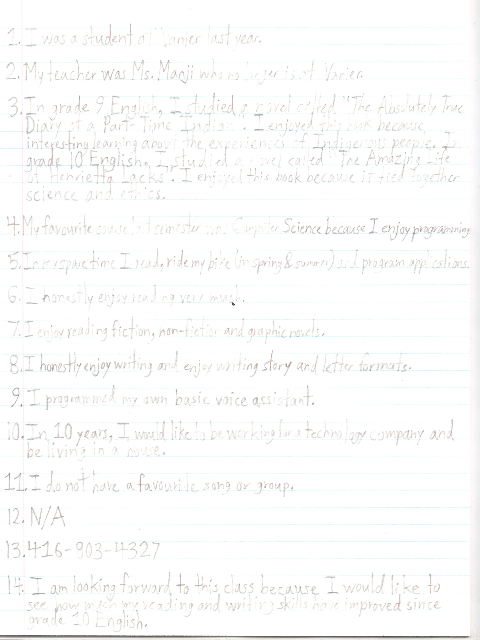 1. I was a student at Vanier last year.
2. My teacher was Ms. Manji who no longer is at Vanier.
3. In grade 9 English, I studied a novel called "The Absolutely True
Diary of a Part-Time Indian". I enjoyed this book because
interesting learning about the experiences of Indigenous people. In
grade 10 English, I studied a novel called "The Amazing Life
of Henrietta Lacks". I enjoyed this book because it tied together
science and ethics.
4. My favourite course last semester was Computer Science because I enjoy programming.
5. In my spare time I read, ride my bike (in spring & summer) and program applications.
6. I honestly enjoy reading very much.
7. I enjoy reading fiction, non-fiction and graphic novels.
8. I honestly enjoy writing and enjoy writing story and letter formats.
9. I programmed my own basic voice assistant.
10. In 10 years, I would like to be working for a technology company and
be living in a house.
11. I do not have a favourite song or group.
12. N/A
13. 416-903-4327
14. I am looking forward to this class because I would like to
see how much my reading and writing skills have improved since
grade 10 English.